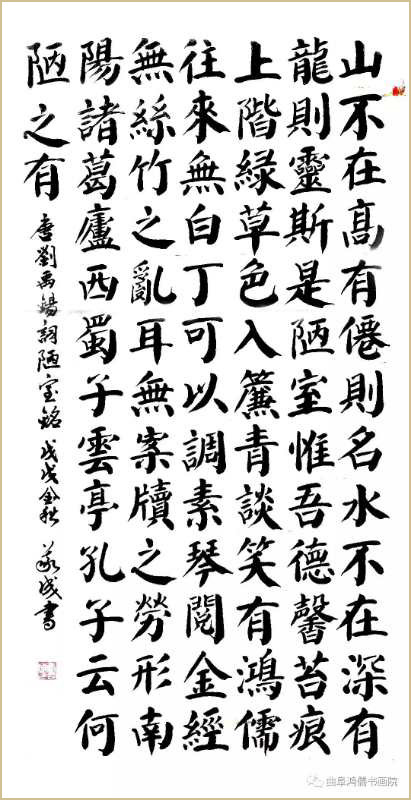 山不在髙有僊則名水不在深有
龍則靈斯是陋室惟吾德馨苔痕
上階緑草色入簾青談笑有鴻儒
往來無白丁可以調素琴閱金經
無絲竹之亂耳無案牘之勞形南
陽諸葛廬西蜀子雲亭孔子云何
陋之有
唐劉禹錫詞陋室銘戊戌金秋 成書
曲阜鸿儒书画院